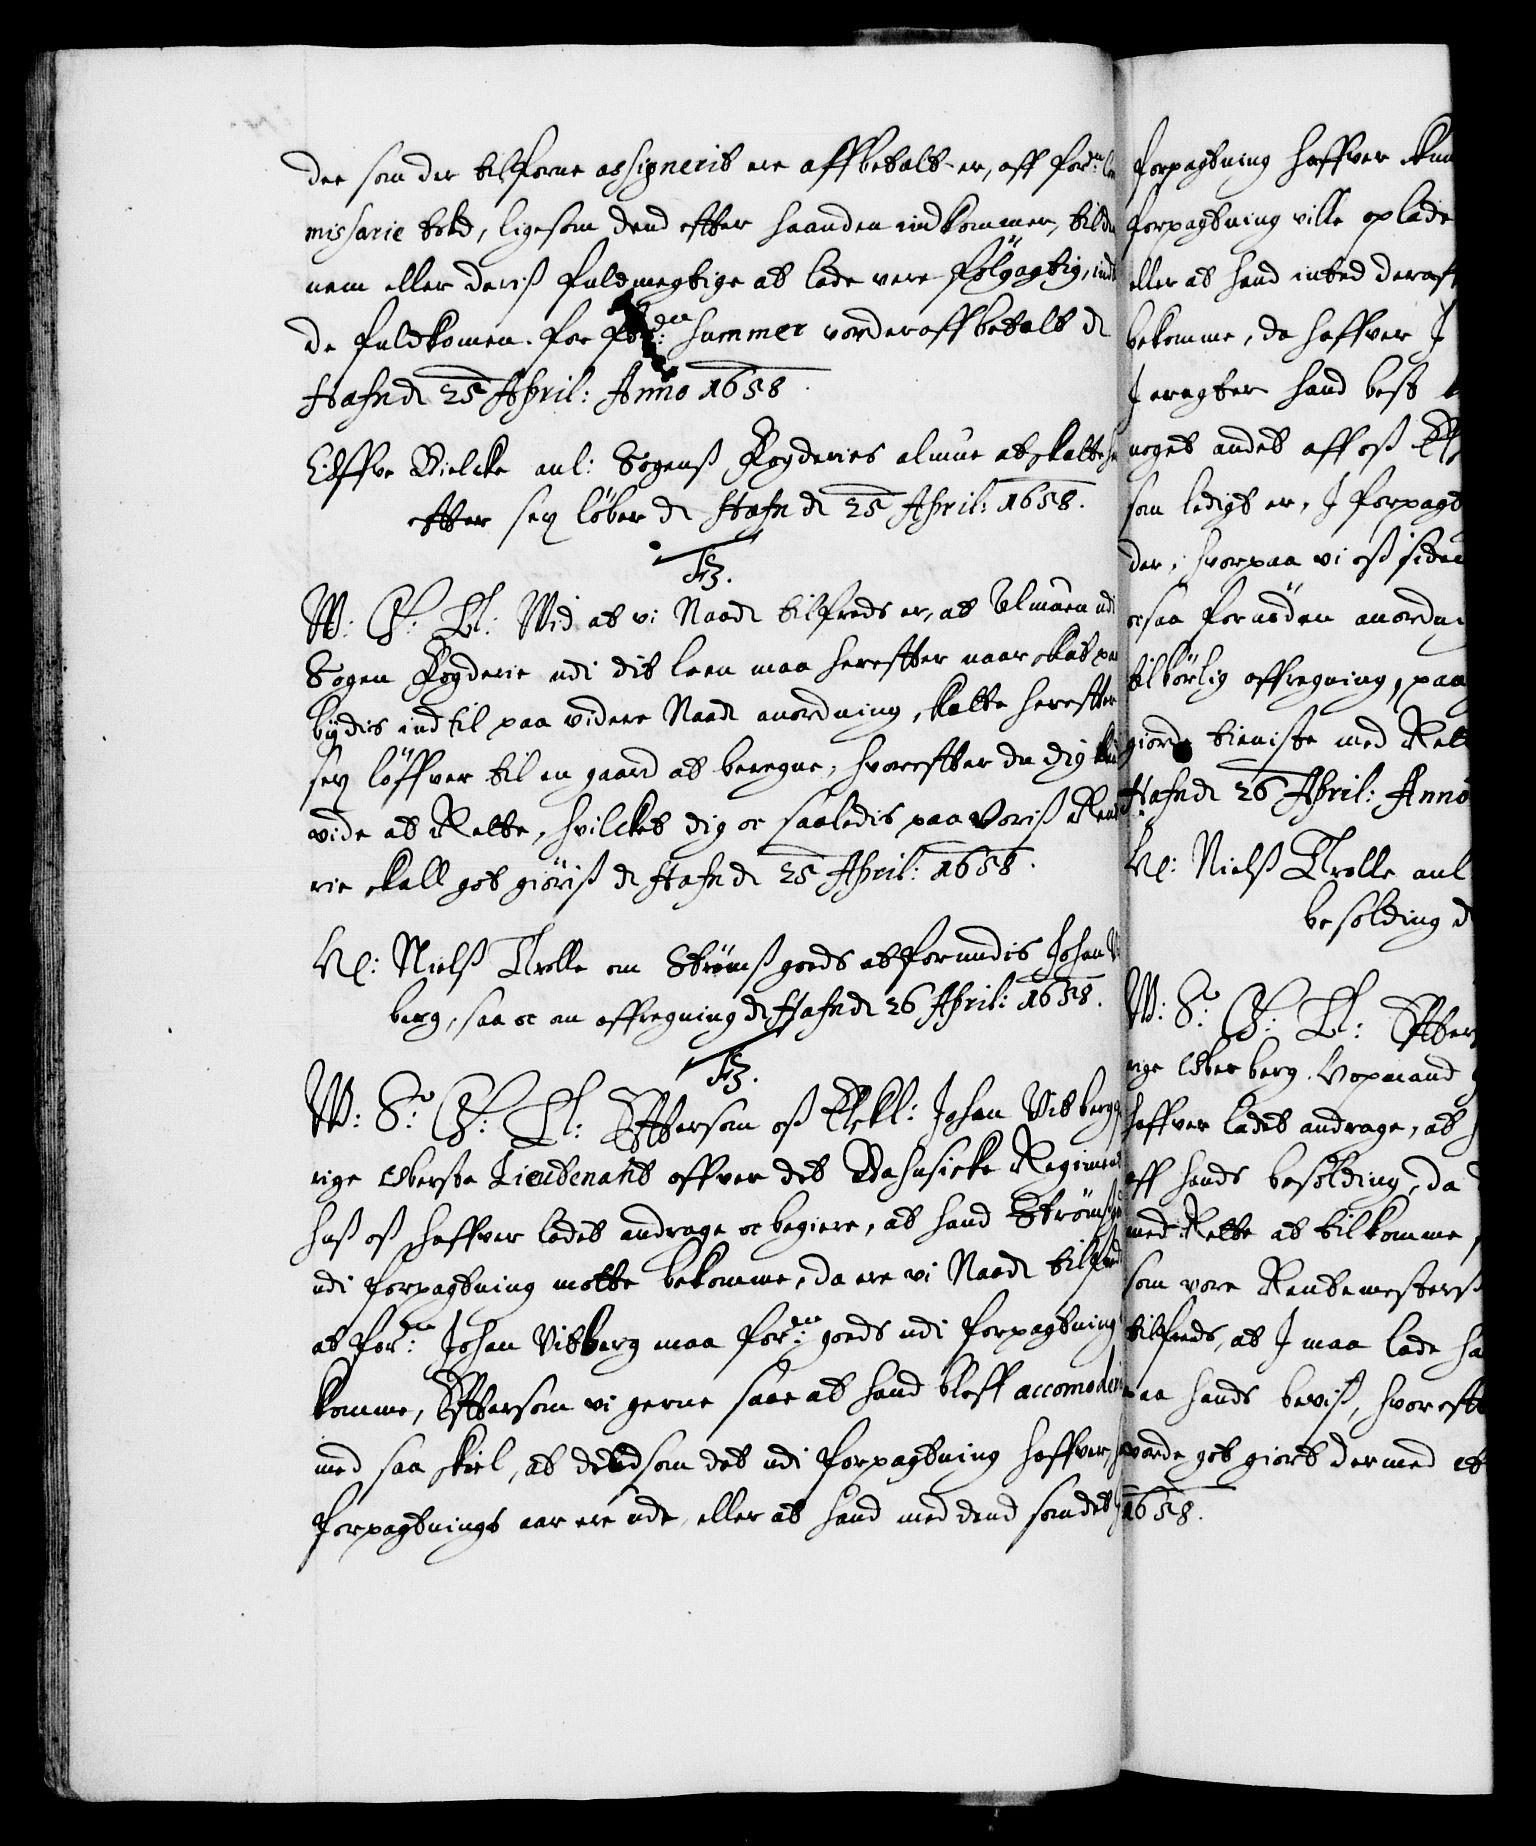 der som der tilforne assignerit ere affbetalt er, aff for:ne
missarie told, ligesom dend efter haanden indkommer, til
nem eller deris fuldmegtige at lade vere fölgagtig, ind
de fuldkomen for for:ne summer vorder affbetalt de
Hafn de 25 April: Anno 1658.
Offve Bielcke anl: Sogens Fogderies almue at skatte
efter sey löber de Hafn de 25 April: 1658.
F3.
W: G: T: Wid at vi Naad: tilfreds er, at Almuen udi
Sogen Fogderie udi dit leen maa herefter naar skat paa
bydis ind til paa videre Naad: anordning, skatte herefter
sey löffver til en gaard at beregne, hvorefter du dig
vide at Rette, hvilcket dig oc saaledis paa Voris Rent
rie skall got giöris de Hafn de 25 April: 1658.
N: Niels Trolle om Ströms goeds at forundis Johan
berg, saa oc om affregning de Hafn de 26 April: 1658.
F3.
W: S: G: T: Eftersom os Elskl: Johan Vitberg
rige Oberste Lieutenant offver det Bahusiske Regiment
hus os haffver ladet andrage oc begiere, at hand Ströms
udi forpagtning motte bekomme, da ere vi Naad: tilfreds
at for:ne Johan Vitberg maa for:ne goeds udi forpagtning
komme, Eftersom vi gerne saae at hand bleff accomoderit
med saa skiel, at dend som det udi forpagtning haffver,
forpagtnings aar ere ude, eller at hand med dend som det
forpagtning haffver kun
forpagtning ville oplade
eller at hand intet deraf
bekomme, da haffver J
J eragter hand best
noget andet aff os
som ledigt er, J forpagt
der, hvorpaa vi os siden
ocsaa fornöden anordn
tilbörlig affregning, paa
giorde tieniste med Rett
Hafn de 26 April: Anno
N: Niels Trolle anl
besolding
W: S: G: T: Efter
rige Osterberg
haffver ladet andrage, at
aff hands besolding, da
med Rette at tilkomme,
som vore Rentemesters
tilfreds, at J maa lade ha
paa hands bevis, hvoreft
vorde got giort dermed
1658.